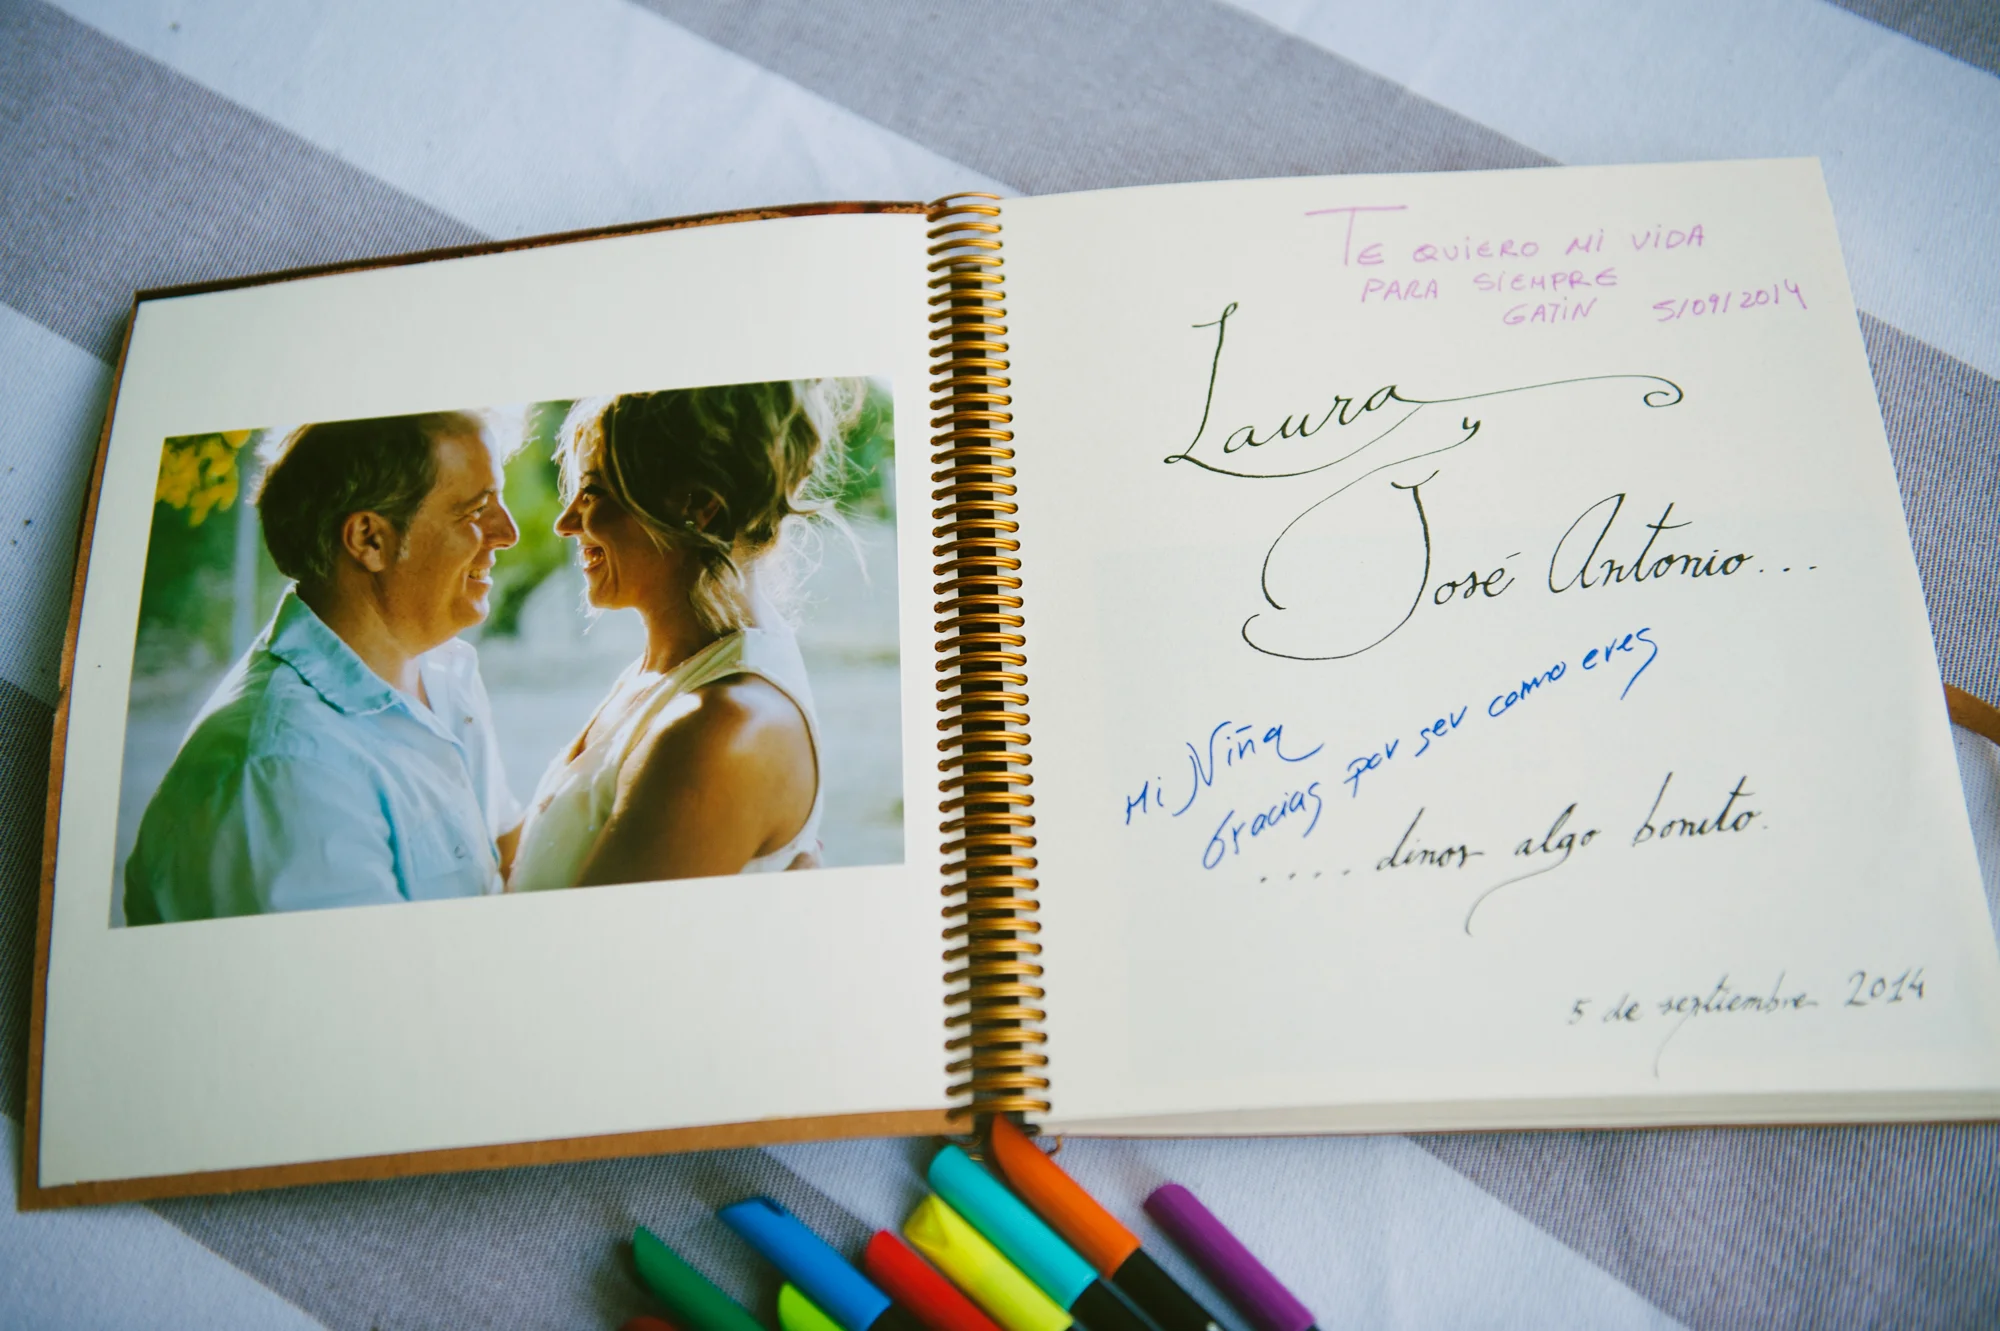 TE QUIERO MI VIDA
PARA SIEMPRE
GATIN 5/09/2014
Laura
y
José Antonio...
Mi Niña
Gracias por ser como eres
.... dinos algo bonito.
5 de septiembre 2014